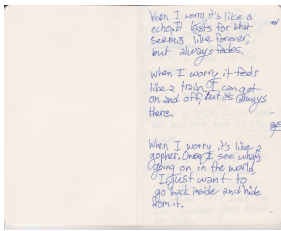 When I worry, it's like a
echo. It lasts for what
seems like forever,
but always fades.
When I worry it feels
like a train. I can get
on and off, but its always
there.
When I worry it's like a
gopher. Once I see what's
going on in the world,
I just want to
go back inside and hide
from it.